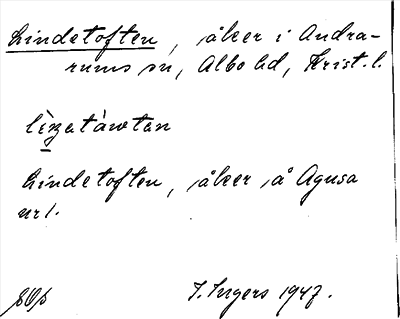 Lindetoften, åker i Andra-
rums sn, Albo hd, Krist. l.
Lindetoften, åker å Agusa
nr 1.
I. Ingers 1947.